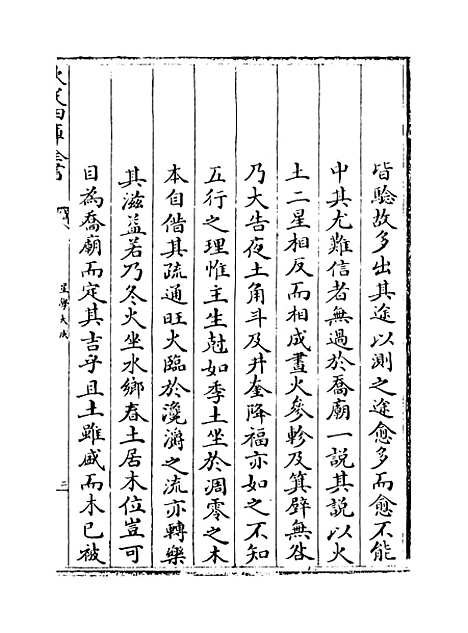 皆驗故多出其途以測之途愈多而愈不能
中其尤難信者無過於喬廟一說其說以火
土二星相反而相成晝火參軫及箕壁無咎
乃大吉夜土角斗及井奎降福亦如之不知
五行之理惟主生尅如季土坐於凋零之木
本自借其疏通旺火臨於瀺灂之流亦轉樂
其滋益若乃冬火坐水鄉春土居木位豈可
目為喬廟而定其吉乎且土雖盛而木已被
欽定四庫全書
星學大成
二